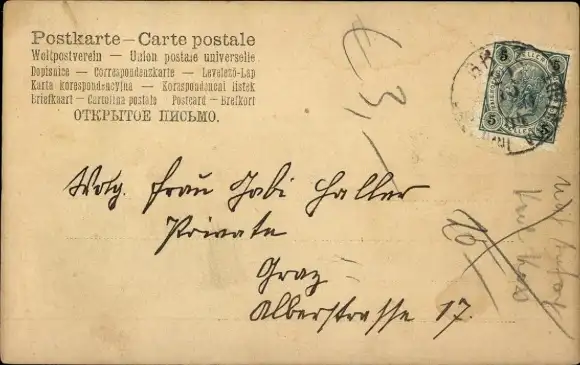 Postkarte — Carte postale
Weltpostverein — Union postale universelle
Dopisnice — Correspondenzkarte — Levelező-Lap
Karta korespondencyjna — Korespondencni listek
Briefkaart — Cartolina postale Postcard — Brefkort
ОТКРЫТОЕ ПИСЬМО.
5 5
HELLER
5 5
€ 3,-
Wolg. Frau Gabi Haller
Private
Graz
Alberstrasse 17.
10,-